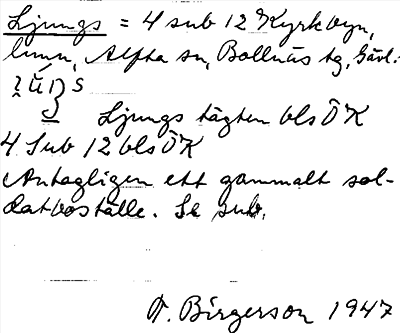 Ljungs = 4 sub 12 Kyrkbyn,
Alfta sn, Bollnäs tg, Gävl.
Ljungs tägten bls ÖK
4 Sub 12 bls ÖK
Antagligen ett gammalt sol-
datboställe. Se sub.
V. Birgerson 1947